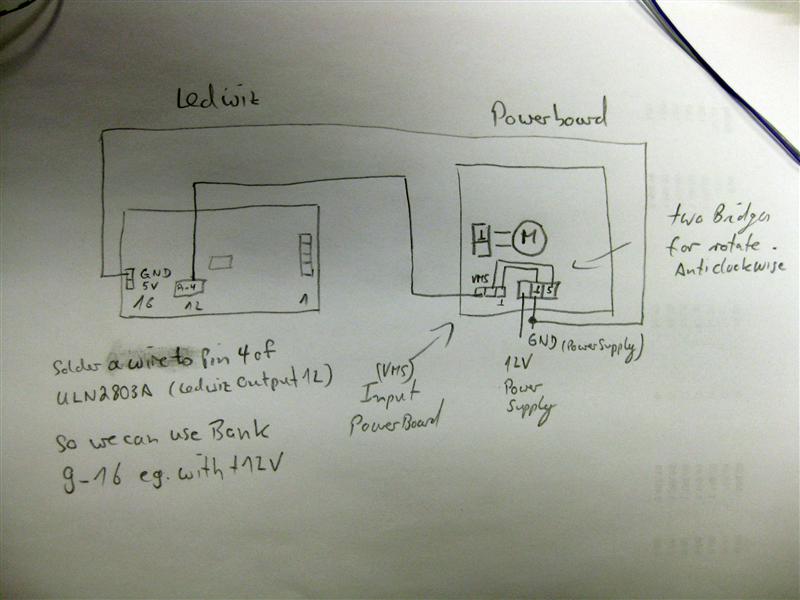 Ledwiz
Powerboard
two Bridges
for rotate
Anticlockwise
1
M
VMS
GND
5V
16
A-4
12
1
1
1
5
GND (PowerSupply)
12V
Power
Supply
(VMS)
Input
PowerBoard
Solder a wire to Pin 4 of
ULN2803A (Ledwiz Output 12)
So we can use Bank
9-16 eg. with +12V